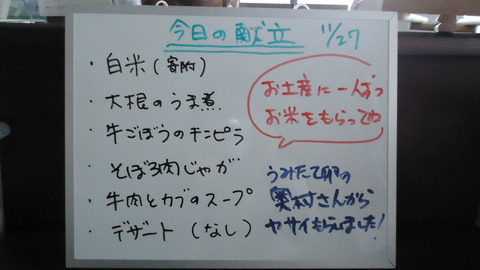 今日の献立 11/27
・白米(寄附)
・大根のうま煮
・牛ごぼうのキンピラ
・そぼろ肉じゃが
・牛肉とカブのスープ
・デザート (なし)
お土産に一人ずつ
お米をもらってね
うみたて卵の
奥村さんから
ヤサイもらいました!